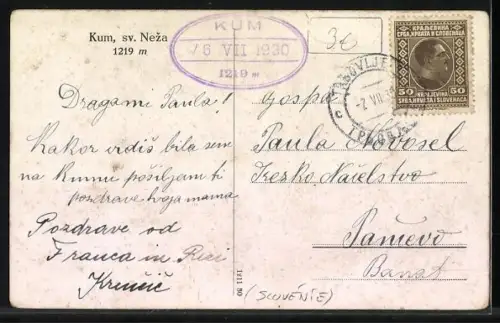 Kum, sv. Neža
1219 m
KUM
6 VII 1930
1219 m
3€
KRALJEVINA
SRBA, HRVATA I SLOVENACA
50 50
TRBOVLJE
-2 VII 30
Dragami Paula!
Kakor vidiš bila sem
na Kumu pošiljam ti
pozdrave tvoja mama
Pozdrave od
Franca in Rezi
Gospa
Paula Novosel
Sresko Načelstvo
Pančevo
Banat
(SLOVÉNIE)